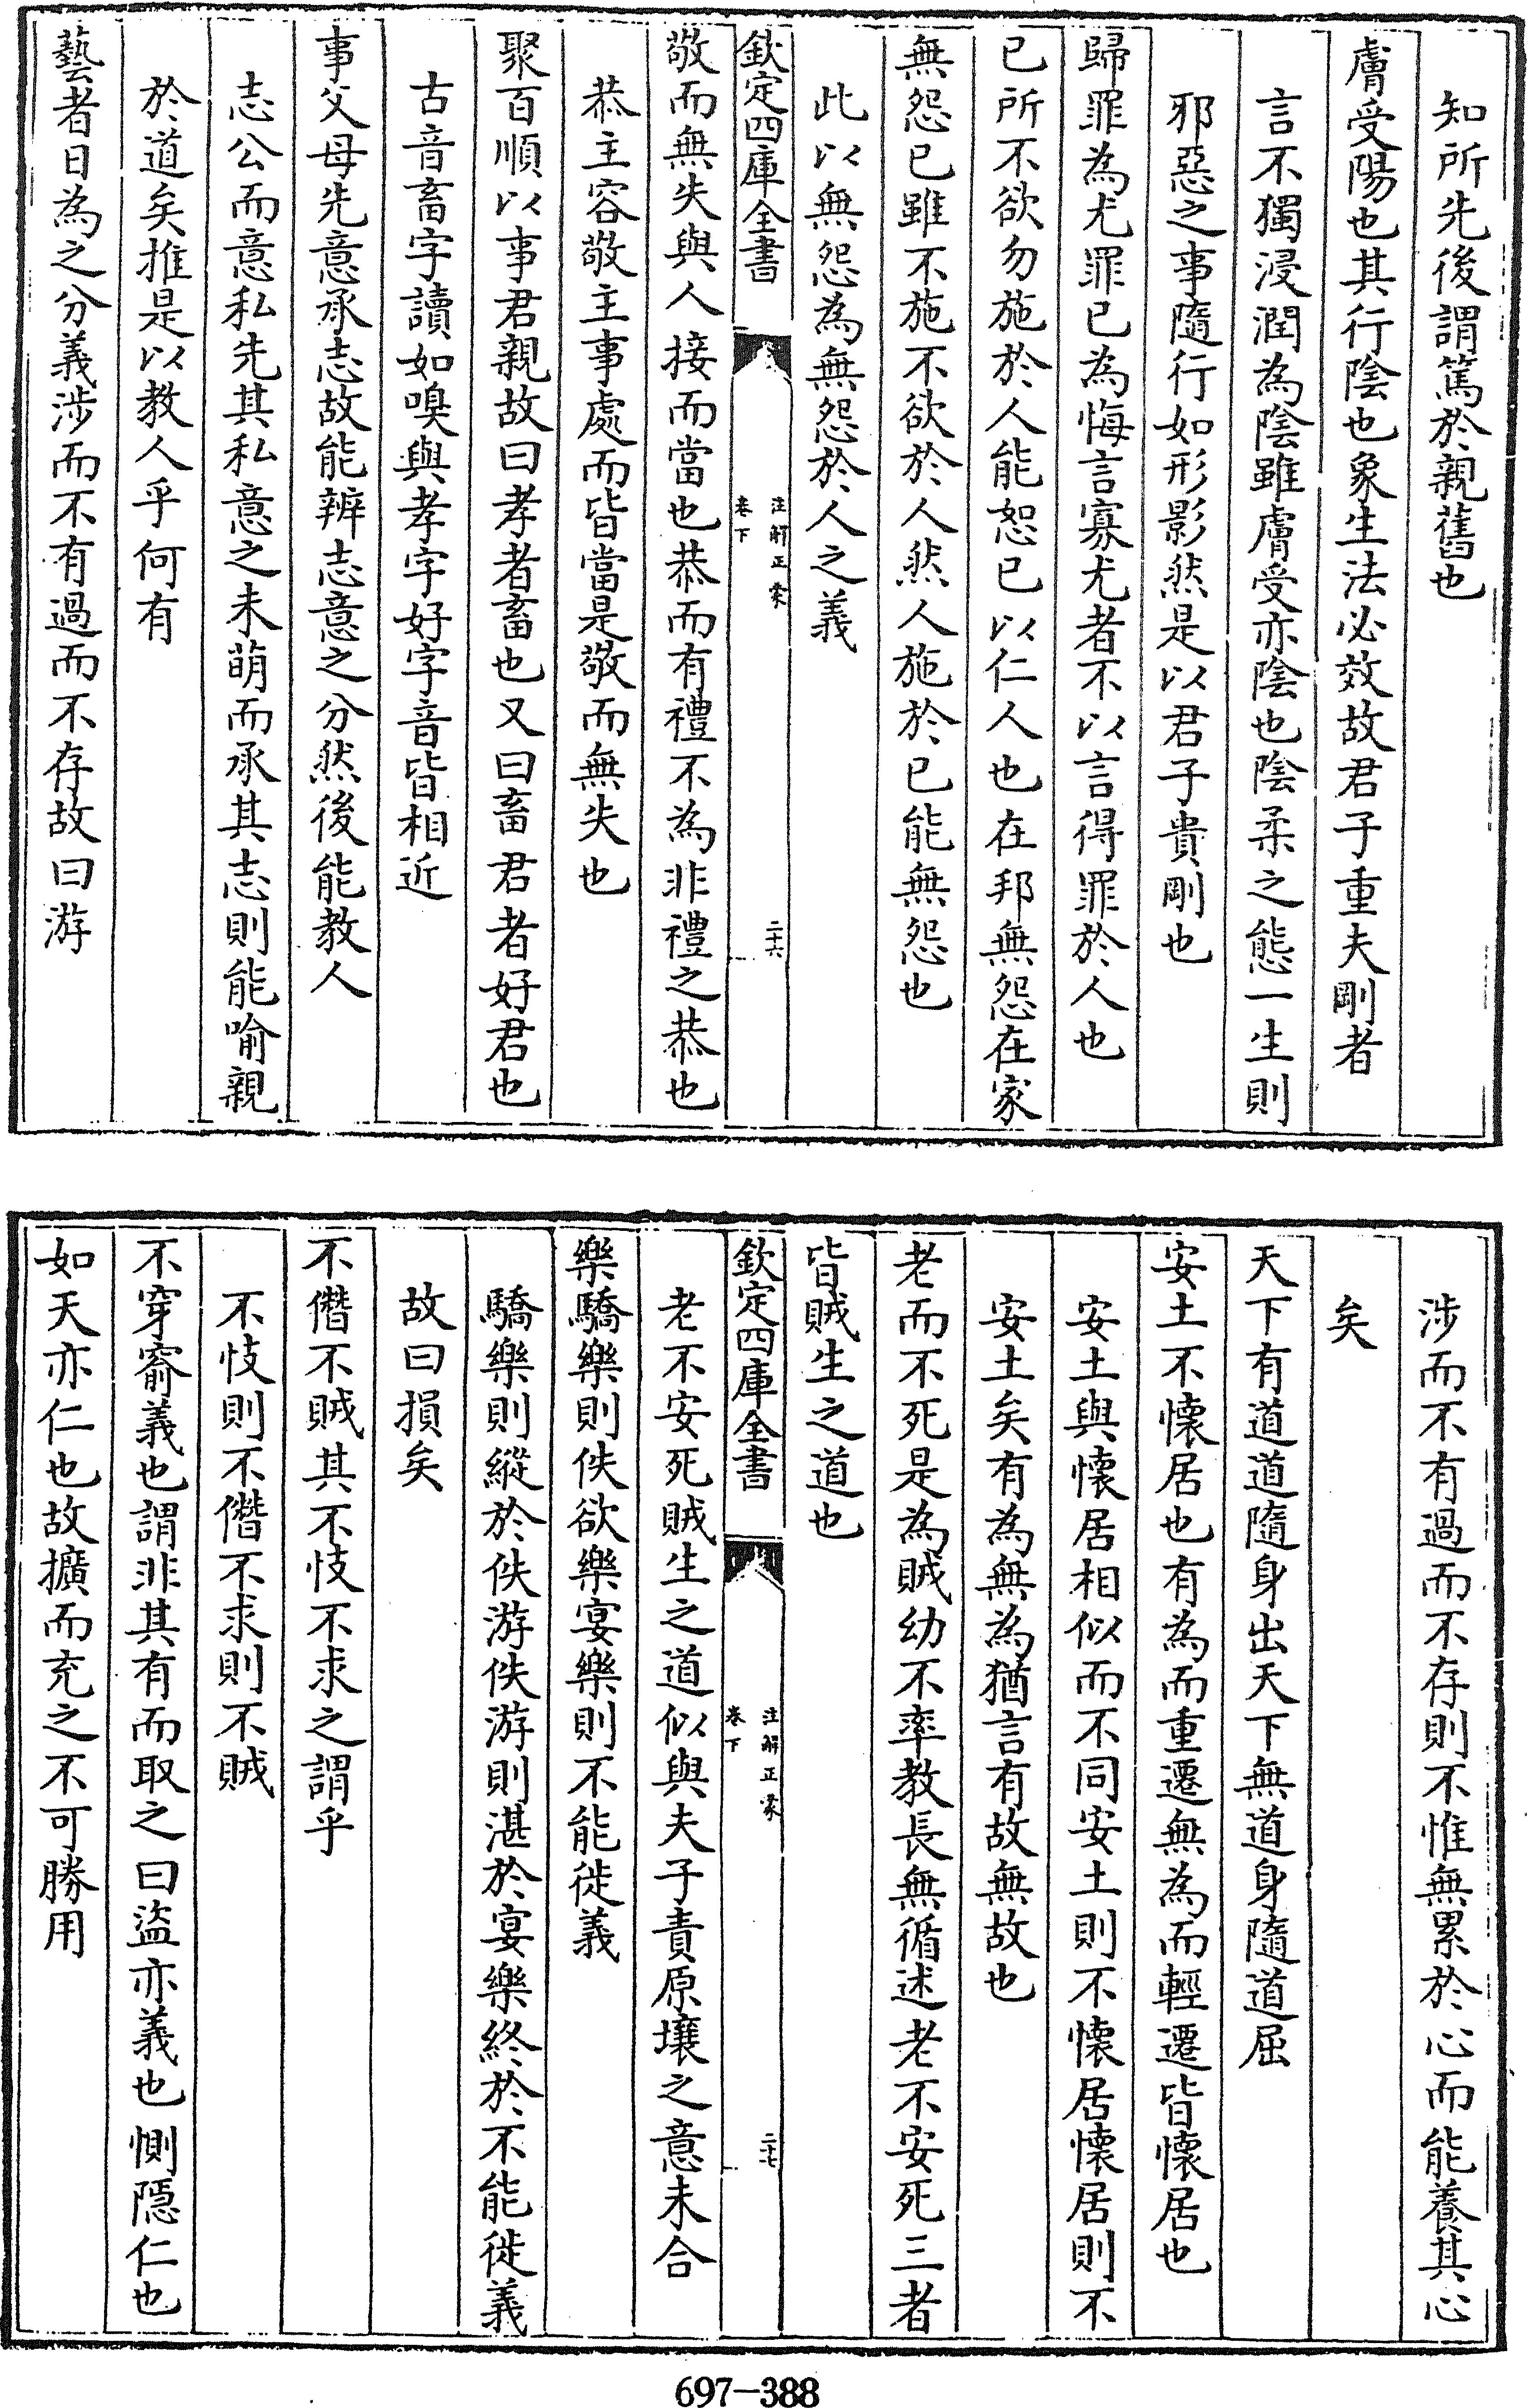 知所先後謂篤於親舊也
膚受陽也其行陰也象生法必效故君子重夫剛者
言不獨浸潤為陰雖膚受亦陰也陰柔之態一生則
邪惡之事隨行如形影然是以君子貴剛也
歸罪為尤罪已為悔言寡尤者不以言得罪於人也
已所不欲勿施於人能恕已以仁人也在邦無怨在家
無怨已雖不施不欲於人然人施於已能無怨也
此以無怨為無怨於人之義
欽定四庫全書
注解正蒙
卷下
二十六
敬而無失與人接而當也恭而有禮不為非禮之恭也
恭主容敬主事處而皆當是敬而無失也
聚百順以事君親故曰孝者畜也又曰畜君者好君也
古音畜字讀如嗅與孝字好字音皆相近
事父母先意承志故能辨志意之分然後能教人
志公而意私先其私意之未萌而承其志則能喻親
於道矣推是以教人乎何有
藝者日為之分義涉而不有過而不存故曰游
涉而不有過而不存則不惟無累於心而能養其心
矣
天下有道道隨身出天下無道身隨道屈
安土不懷居也有為而重遷無為而輕遷皆懷居也
安土與懷居相似而不同安土則不懷居懷居則不
安土矣有為無為猶言有故無故也
老而不死是為賊幼不率教長無循述老不安死三者
皆賊生之道也
欽定四庫全書
注解正蒙
卷下
二十七
老不安死賊生之道似與夫子責原壤之意未合
樂驕樂則佚欲樂宴樂則不能徙義
驕樂則縱於佚游佚游則湛於宴樂終於不能徙義
故曰損矣
不僭不賊其不忮不求之謂乎
不忮則不僭不求則不賊
不穿窬義也謂非其有而取之曰盜亦義也惻隱仁也
如天亦仁也故擴而充之不可勝用
697-388